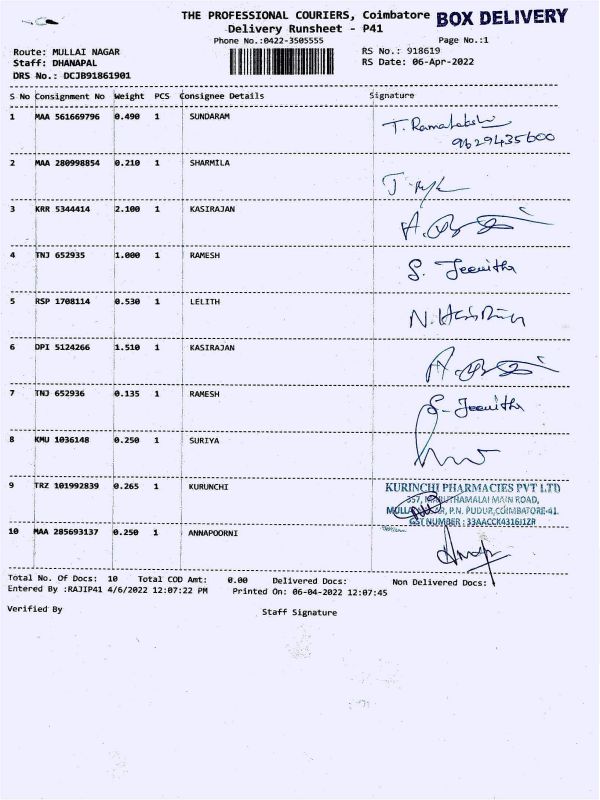 THE PROFESSIONAL COURIERS, Coimbatore BOX DELIVERY
Delivery Runsheet - P41
Phone No.:0422-3505555 Page No.:1
Route: MULLAI NAGAR RS No.: 918619
Staff: DHANAPAL RS Date: 06-Apr-2022
DRS No.: DCJB91861901
S No Consignment No Weight PCS Consignee Details Signature
1 MAA 561669796 0.490 1 SUNDARAM T. Ramalakshi
9629435600
2 MAA 280998854 0.210 1 SHARMILA
3 KRR 5344414 2.100 1 KASIRAJAN
4 TNJ 652935 1.000 1 RAMESH S. Jeevitha
5 RSP 1708114 0.530 1 LELITH
6 DPI 5124266 1.510 1 KASIRAJAN
7 TNJ 652936 0.135 1 RAMESH S. Jeevitha
8 KMU 1036148 0.250 1 SURIYA
9 TRZ 101992839 0.265 1 KURUNCHI KURINCHI PHARMACIES PVT LTD
357, MARUTHAMALAI MAIN ROAD,
MULLAI NAGAR, P.N. PUDUR, COIMBATORE-41.
GST NUMBER : 33AACCK4316J1ZR
10 MAA 285693137 0.250 1 ANNAPOORNI
Total No. Of Docs: 10 Total COD Amt: 0.00 Delivered Docs: Non Delivered Docs:
Entered By :RAJIP41 4/6/2022 12:07:22 PM Printed On: 06-04-2022 12:07:45
Verified By Staff Signature